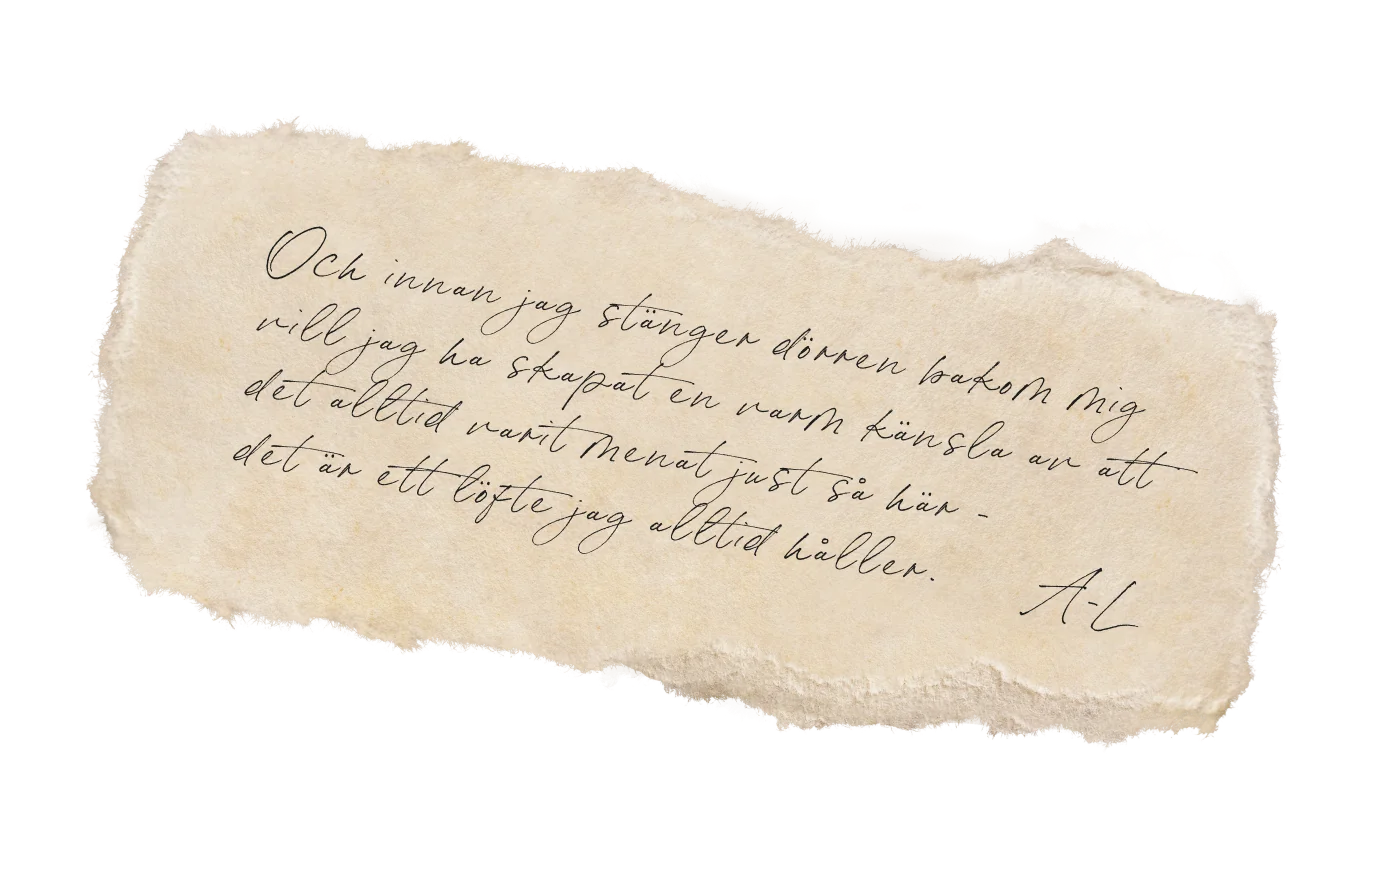 Och innan jag stänger dörren bakom mig
vill jag ha skapat en varm känsla av att
det alltid varit menat just så här -
det är ett löfte jag alltid håller.
A-L